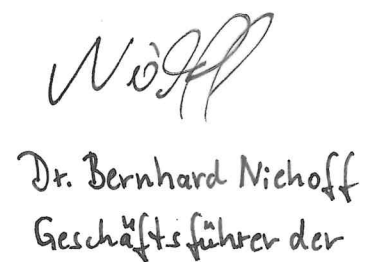 Dr. Bernhard Niehoff
Geschäftsführer der